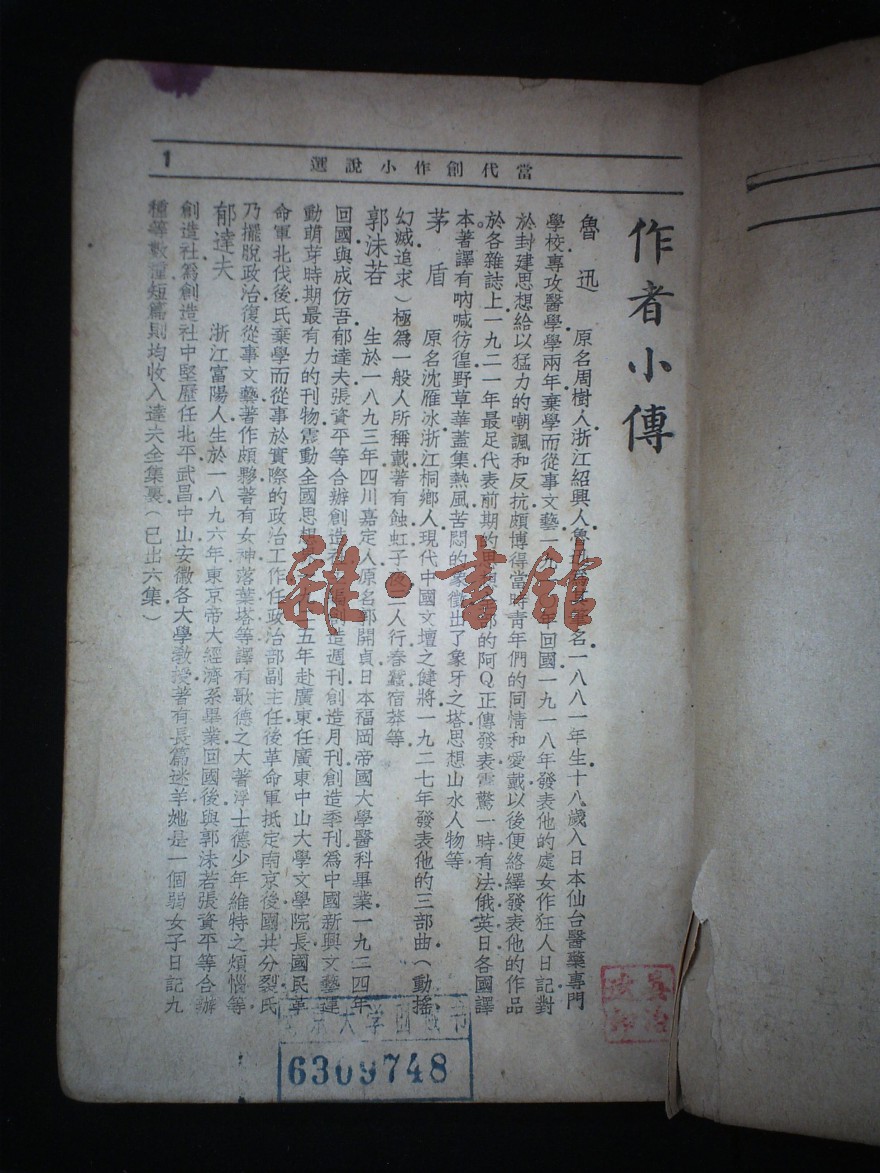 1
當代創作小說選
作者小傳
魯迅 原名周樹人浙江紹興人魯迅為其筆名一八八一年生十八歲入日本仙台醫藥專門
學校專攻醫學學兩年棄學而從事文藝一九 年回國一九一八年發表他的處女作狂人日記對
於封建思想給以猛力的嘲諷和反抗頗博得當時青年們的同情和愛戴以後便絡繹發表他的作品
於各雜誌上一九二一年最足代表前期的 的阿Q正傳發表震驚一時有法俄英日各國譯
本著譯有吶喊彷徨野草華蓋集熱風苦悶的象徵出了象牙之塔思想山水人物等
茅盾 原名沈雁冰浙江桐鄉人現代中國文壇之健將一九二七年發表他的三部曲（動搖
幻滅追求）極為一般人所稱戴著有蝕虹子夜三人行春蠶宿莽等
郭沫若 生於一八九三年四川嘉定人原名郭開貞日本福岡帝國大學醫科畢業一九二四年
回國與成仿吾郁達夫張資平等合辦創造社 創造週刊創造月刊創造季刊為中國新興文藝運
動萌芽時期最有力的刊物震動全國思想 十五年赴廣東任廣東中山大學文學院長國民革
命軍北伐後氏棄學而從事於實際的政治工作任政治部副主任後革命軍抵定南京後國共分裂氏
乃擺脫政治復從事文藝著作頗夥著有女神落葉塔等譯有歌德之大著浮士德少年維特之煩惱等
郁達夫 浙江富陽人生於一八九六年東京帝大經濟系畢業回國後與郭沫若張資平等合辦
創造社為創造社中堅歷任北平武昌中山安徽各大學教授著有長篇迷羊她是一個弱女子日記九
種等數種短篇則均收入達夫全集裏（已出六集）
雜·書館
大学图
6309748